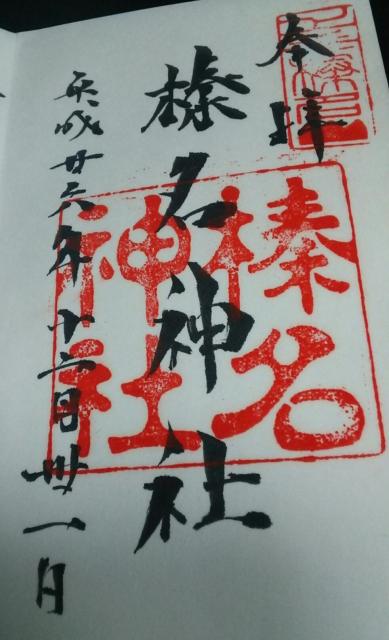 奉拝
榛名神社
榛名
神社
平成廿六年十二月卅一日